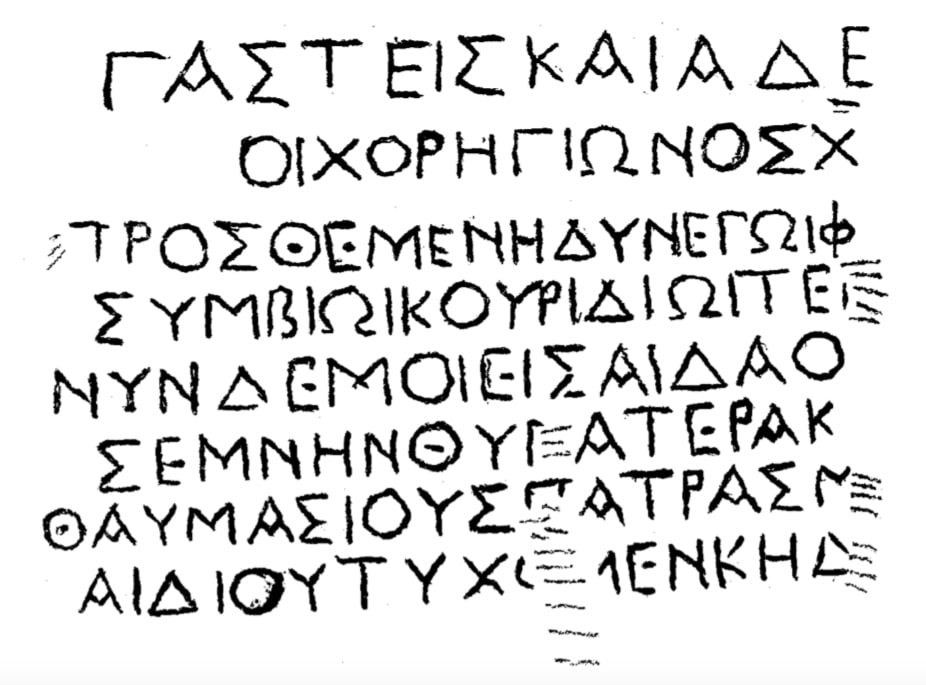 ΓΑΣΤΕΙΣΚΑΙΑΔΕ
ΟΙΧΟΡΗΓΙΩΝΟΣΧ
ΤΡΟΣΘΕΜΕΝΗΔΥΝΕΓΩΙΦ
ΣΥΜΒΙΩΙΚΟΥΡΙΔΙΩΙΤΕΙ
ΝΥΝΔΕΜΟΙΕΙΣΑΙΔΑΟ
ΣΕΜΝΗΝΘΥΓΑΤΕΡΑΚ
ΘΑΥΜΑΣΙΟΥΣΠΑΤΡΑΣΜ
ΑΙΔΙΟΥΤΥΧΟ ΜΕΝΚΗΔ